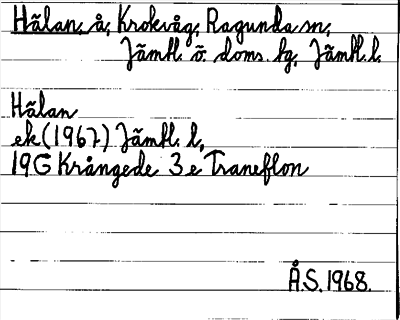 Hälan, å, Krokvåg, Ragunda sn,
Jämtl. ö. doms. hg, Jämtl. l.
Hälan
ek (1967) Jämtl. l,
19G Krångede 3e Traneflon
Å.S. 1968.